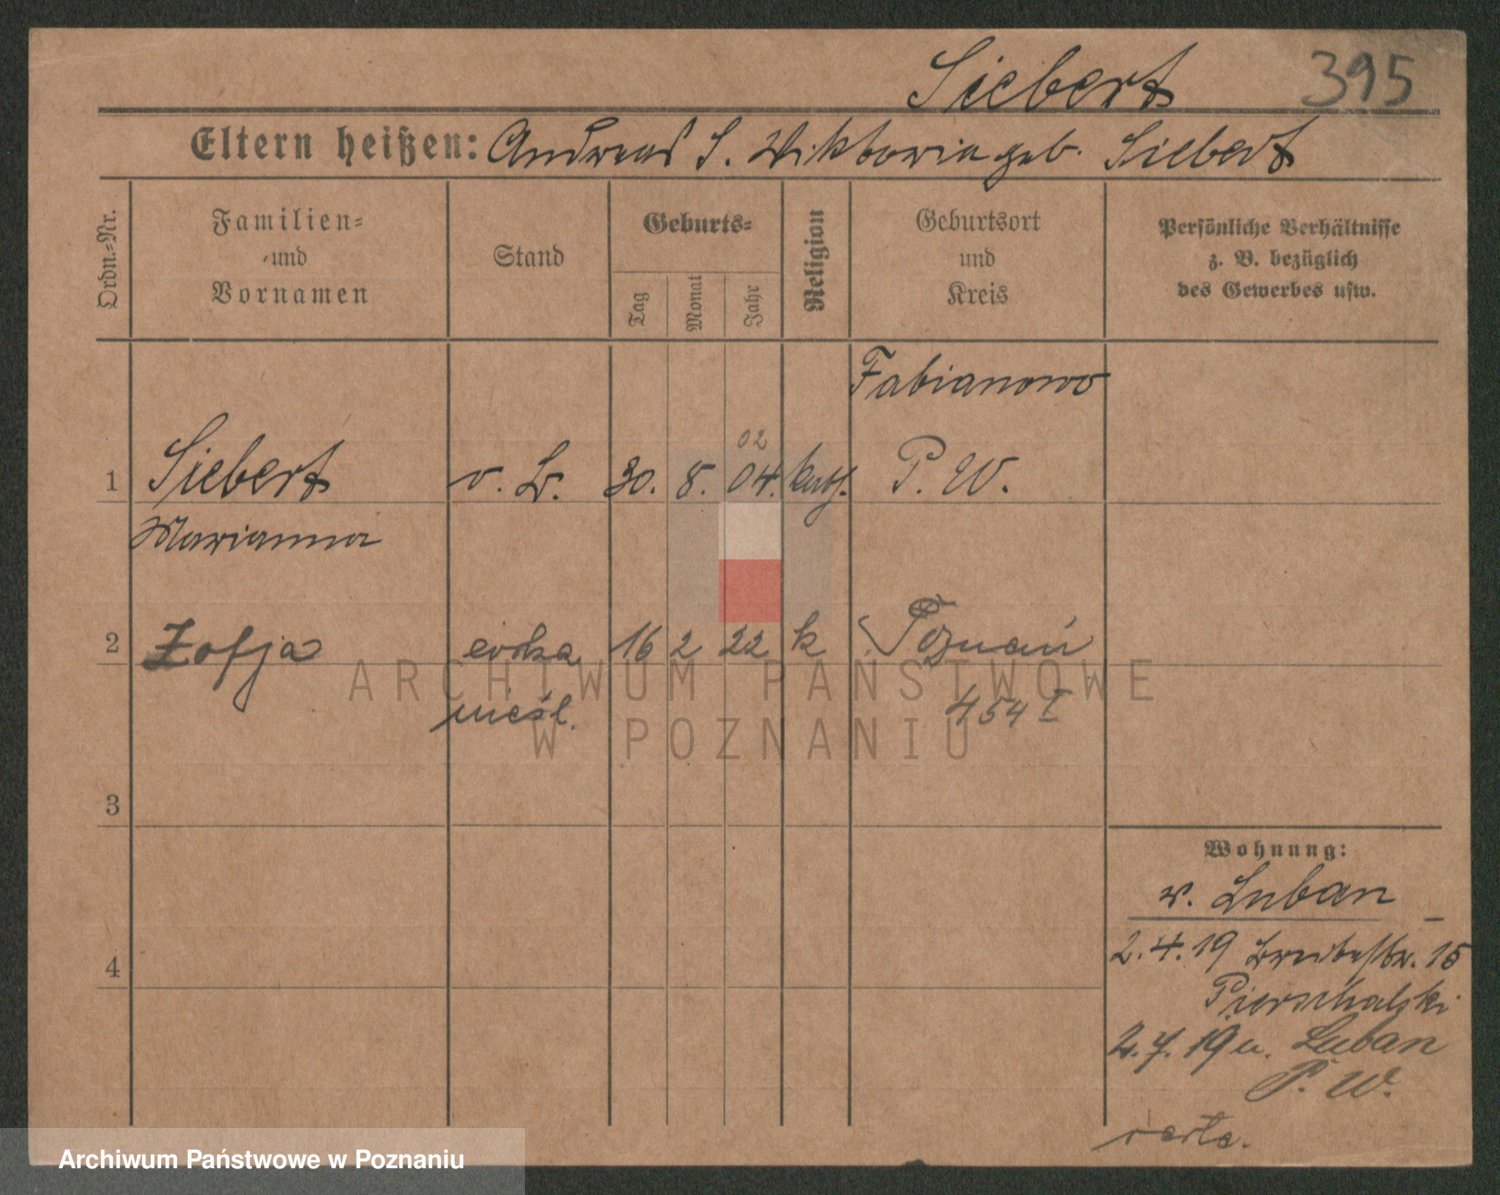 Siebert 395
Eltern heißen: Andreas S. Wiktoria geb. Siebert
Ordn.-Nr.
Familien- und Vornamen
Stand
Geburts-
Tag
Monat
Jahr
Religion
Geburtsort und Kreis
Persönliche Verhältnisse
z. B. bezüglich
des Gewerbes usw.
Fabianowo
02
1 Siebert o. B. 30. 8. 04. kath. P. W.
Marianna
2 Zofja córka 16 2 22 k Poznań
nieśl. 454 I
ARCHIWUM PAŃSTWOWE
W POZNANIU
3
Wohnung:
v. Luban
4
2.4.19 Breitestr. 15
2.7.19 n. Luban
P. W.
verte.
Archiwum Państwowe w Poznaniu